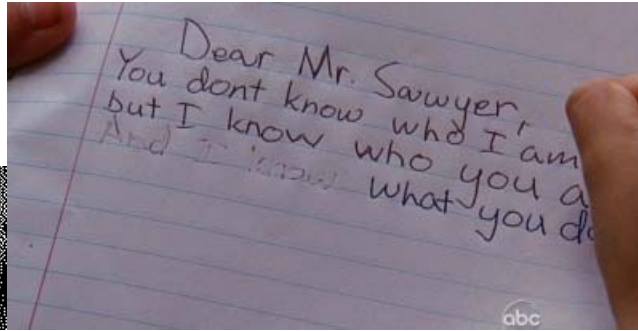 Dear Mr. Sawyer,
You dont know who I am
but I know who you a
And I know what you do
abc